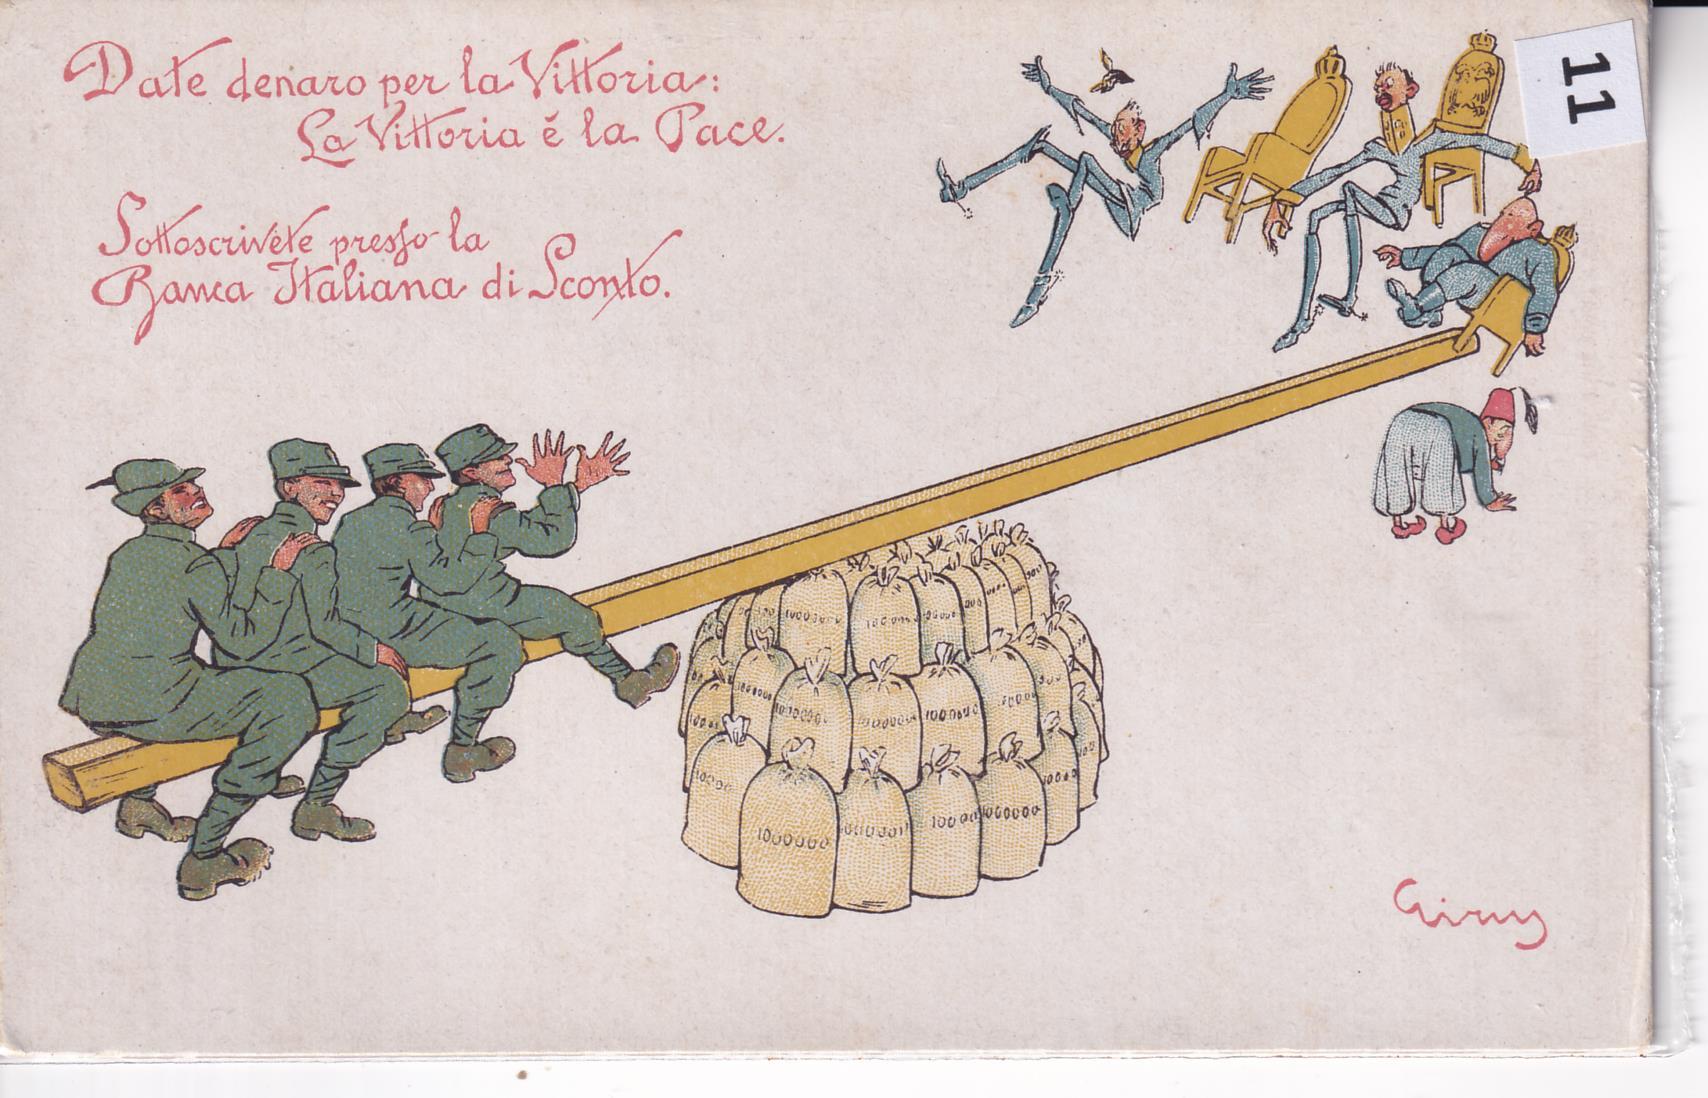 Date denaro per la Vittoria:
La Vittoria é la Pace.
Sottoscrivéte presso la
Banca Italiana di Sconto.
11
1000000
1000000
1000000
1000000
1000000